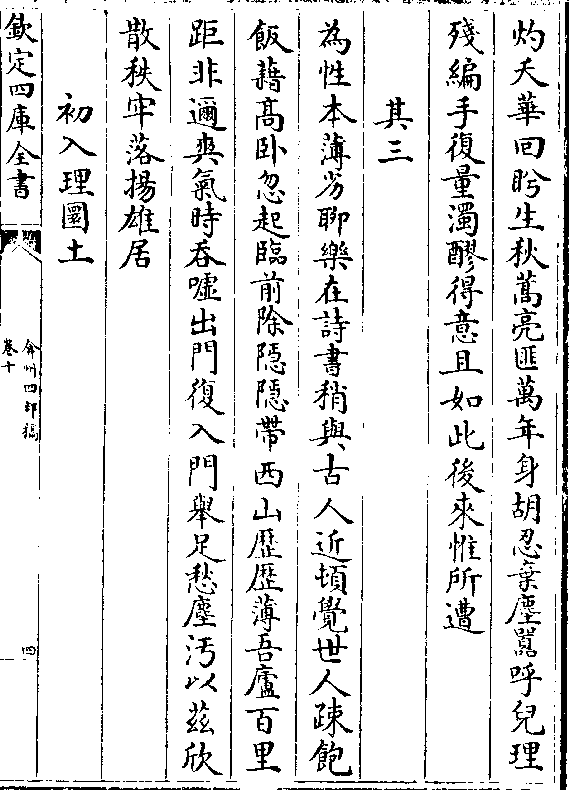 灼夭華回眄生秋蒿亮匪萬年身胡忍棄塵囂呼兒理
殘編手復量濁醪得意且如此後來惟所遭
其三
為性本薄劣聊樂在詩書稍與古人近頓覺世人疎飽
飯藉高卧忽起臨前除隠隠帶西山歴歴薄吾廬百里
距非邇爽氣時吞嘘出門復入門舉足愁塵汚以兹欣
散秩牢落揚雄居
初入理圜土
欽定四庫全書
弇州四部稿
卷十
四